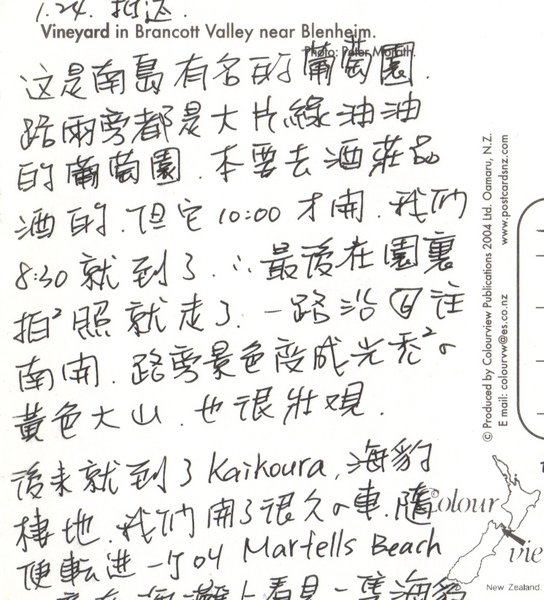 1.24.
Vineyard in Brancott Valley near Blenheim.
Photo: Peter Morath.
这是南島有名的葡萄園.
路兩旁都是大片綠油油
的葡萄園.本要去酒莊品
酒的.但它10:00才開.我們
8:30就到了.∴最後在園裏
拍²照就走了.一路沿①往
南開.路旁景色变成光秃²の
黃色大山.也很壯觀.
後來就到了Kaikoura,海豹
棲地.我們開了很久の車.隨
便転進一个叫Marfells Beach
上看見一隻海豹
© Produced by Colourview Publications 2004 Ltd. Oamaru, N.Z.
E mail: colourvw@es.co.nz www.postcardsnz.com
Colour
vie
New Zealand.